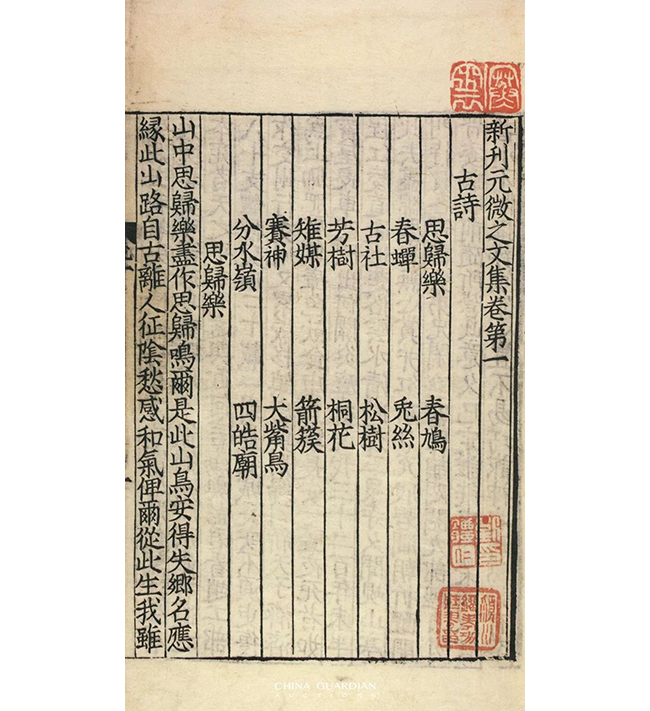 新刋元微之文集卷第一
古詩
思歸樂 春鳩
春蟬 兎絲
古社 松樹
芳樹 桐花
雉媒 箭鏃
賽神 大觜烏
分水嶺 四皓廟
思歸樂
山中思歸樂盡作思歸鳴爾是此山鳥安得失鄉名應
緣此山路自古離人征陰愁感和氣俾爾從此生我雖
CHINA GUARDIAN
AUCTIONS